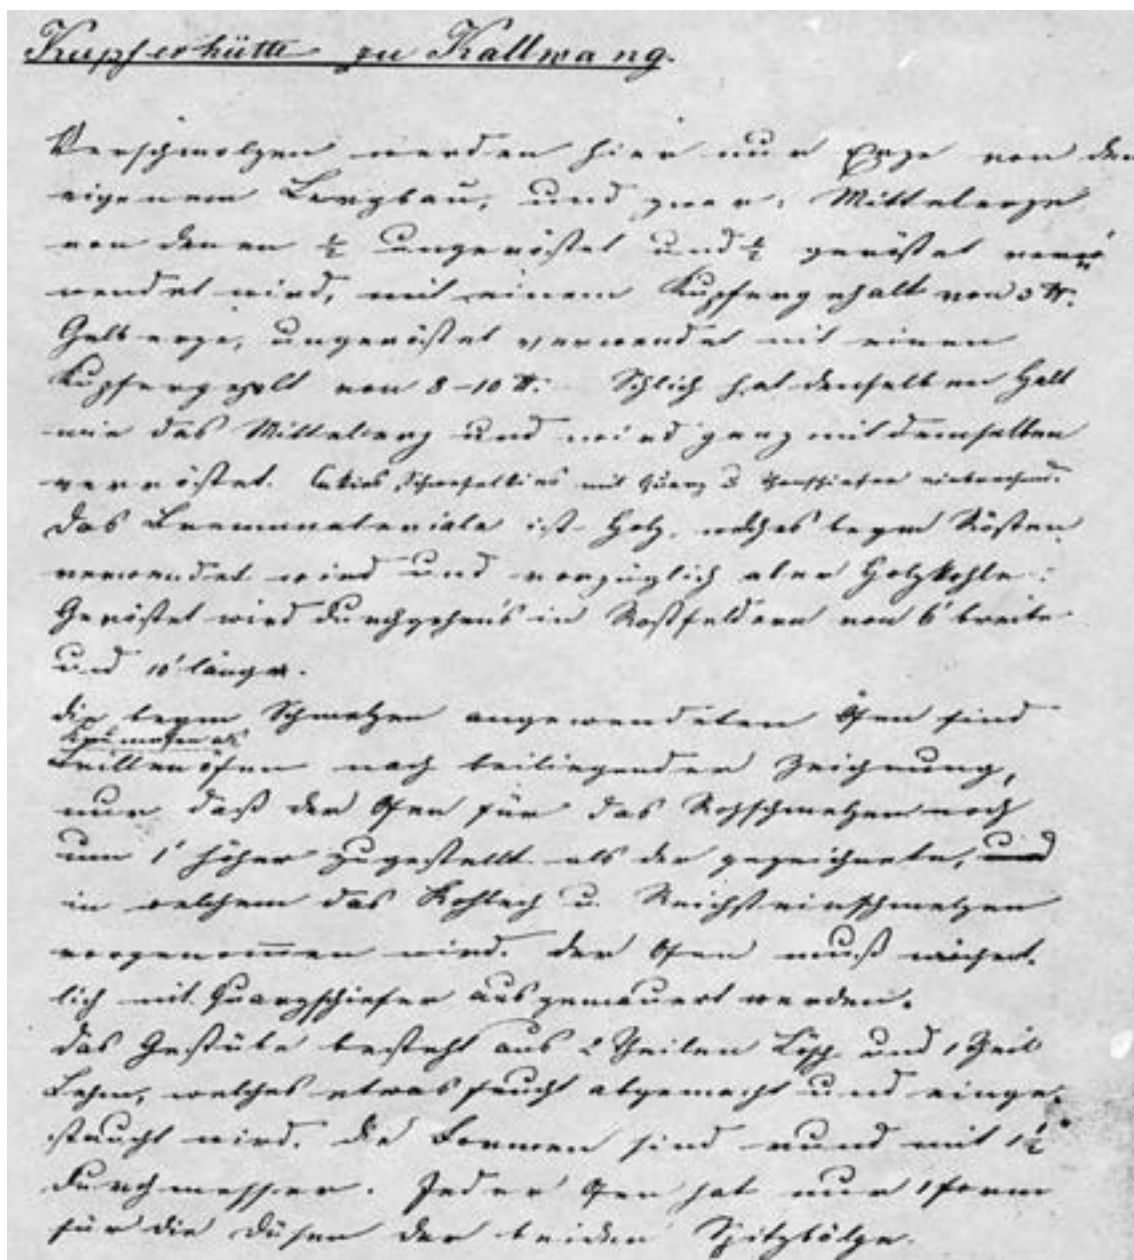 Kupferhütte zu Kallwang.
Verschmolzen werden hier nur Erze von den
eigenem Bergbau, und zwar: Mittelerze
von denen ½ ungeröstet und ½ geröstet ver-
wendet wird, mit einem Kupfergehalt von 3 ℔.
Gelberze, ungeröstet verwendet mit einen
Kupfergehalt von 8–10 ℔. Schlich hat denselben Halt
wie das Mittelerz und wird ganz mit demselben
verröstet. Schwefelkies mit Quarz u. Thonschiefer einbrechend.
Das Brennmateriale ist Holz, welches beym Rösten
verwendet wird und vorzüglich aber Holzkohle.
Geröstet wird durchgehens in Rostfeldern von 6' breite
und 10' länge.
Die beym Schmelzen angewendeten Öfen sind
Brillenöfen nach beiliegender Zeichnung,
nur daß der Ofen für das Rohschmelzen noch
um 1' höher zugestellt als der gezeichnete, und
in welchem das Rohlech u. Reichsteinschmelzen
vorgenom̅en wird. Der Ofen muß wöchent-
lich mit Quarzschiefer ausgemauert werden.
Das Gestübe besteht aus 2 Theilen Lösch und 1 Theil
Lehm, welches etwas feucht abgemacht und einge-
staucht wird. Die Formen sind rund mit 1½"
Durchmesser. Jeder Ofen hat nur 1 Form
für die Düsen der beiden Spitzbälge.